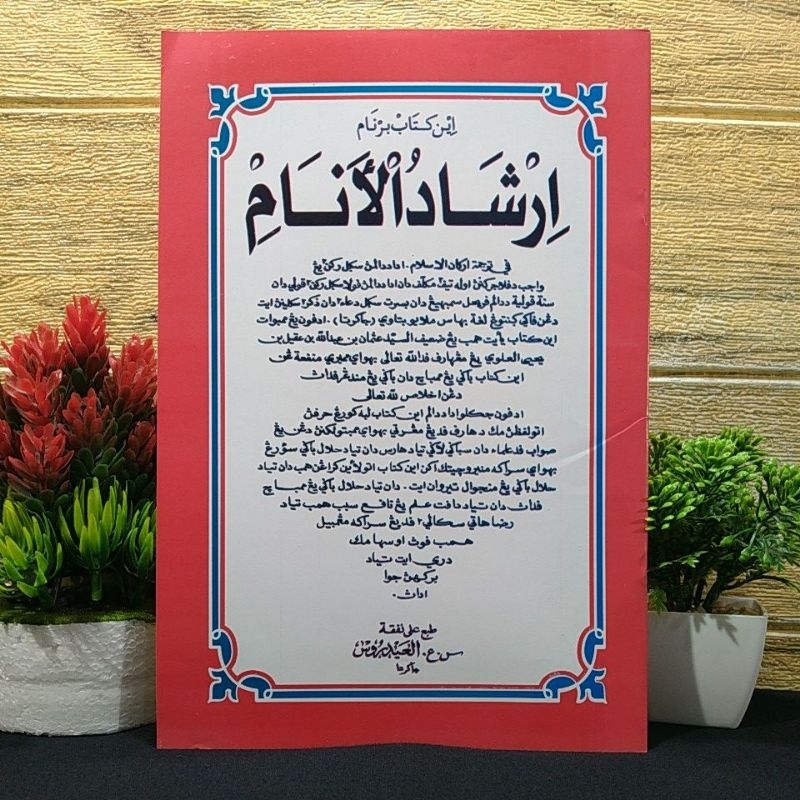 اين كتاب برنام
اِرْشَادُ الْأَنَامْ
في ترجمة اركان الاسلام. اد ددالمڽ سكل ركن يڠ
واجب دفلاجركنڽ اوله تيڤ٢ مكلف دان اد ددالمڽ ڤولا سكل ركن٢ قولي دان
سنة قولية ددالم فرض سمبهيڠ دان بصرت سكل دعاء٢ دان ذكر٢ سكلينڽ ايت
دڠن ڤاكي كنتوڠ لغة بهاس ملايو بتاوي (جاكرتا). ادڤون يڠ ممبوات
اين كتاب يأيت همب يڠ ضعيف السيد عثمان بن عبدالله بن عقيل بن
يحيى العلوي يڠ مڠهارڤ فدالله تعالى بهوا ي ممبري منفعة دڠن
اين كتاب باكي يڠ ممباچ دان باكي يڠ مندڠر ڤداڽ
دڠن اخلاص لله تعالى
ادڤون جكلو اد ددالم اين كتاب ليه كورڠ حرفڽ
اتو لفظڽ مك دهارڤ فد يڠ مڠرتي بهوا ي ممبتولكن دڠن يڠ
صواب فد علماء دان سباكي لاكي تياد هارس دان تياد حلال باكي سؤرڠ
بهوا ي سراكه منبر چيتك اكن اين كتاب اتو لاين كراڠن همب دان تياد
حلال باكي يڠ منجوال تيروان ايت. دان تياد حلال باكي يڠ ممباچ
ڤداڽ دان تياد داڤت علم يڠ نافع سبب همب تياد
رضا هاتي سكالي٢ فد يڠ سراكه مڠمبيل
همب ڤوڽ اوسها مك
دري ايت تياد
بركهن جوا
اداڽ.
طبع على نفقة
س.ع. العيدروس
جاكرتا